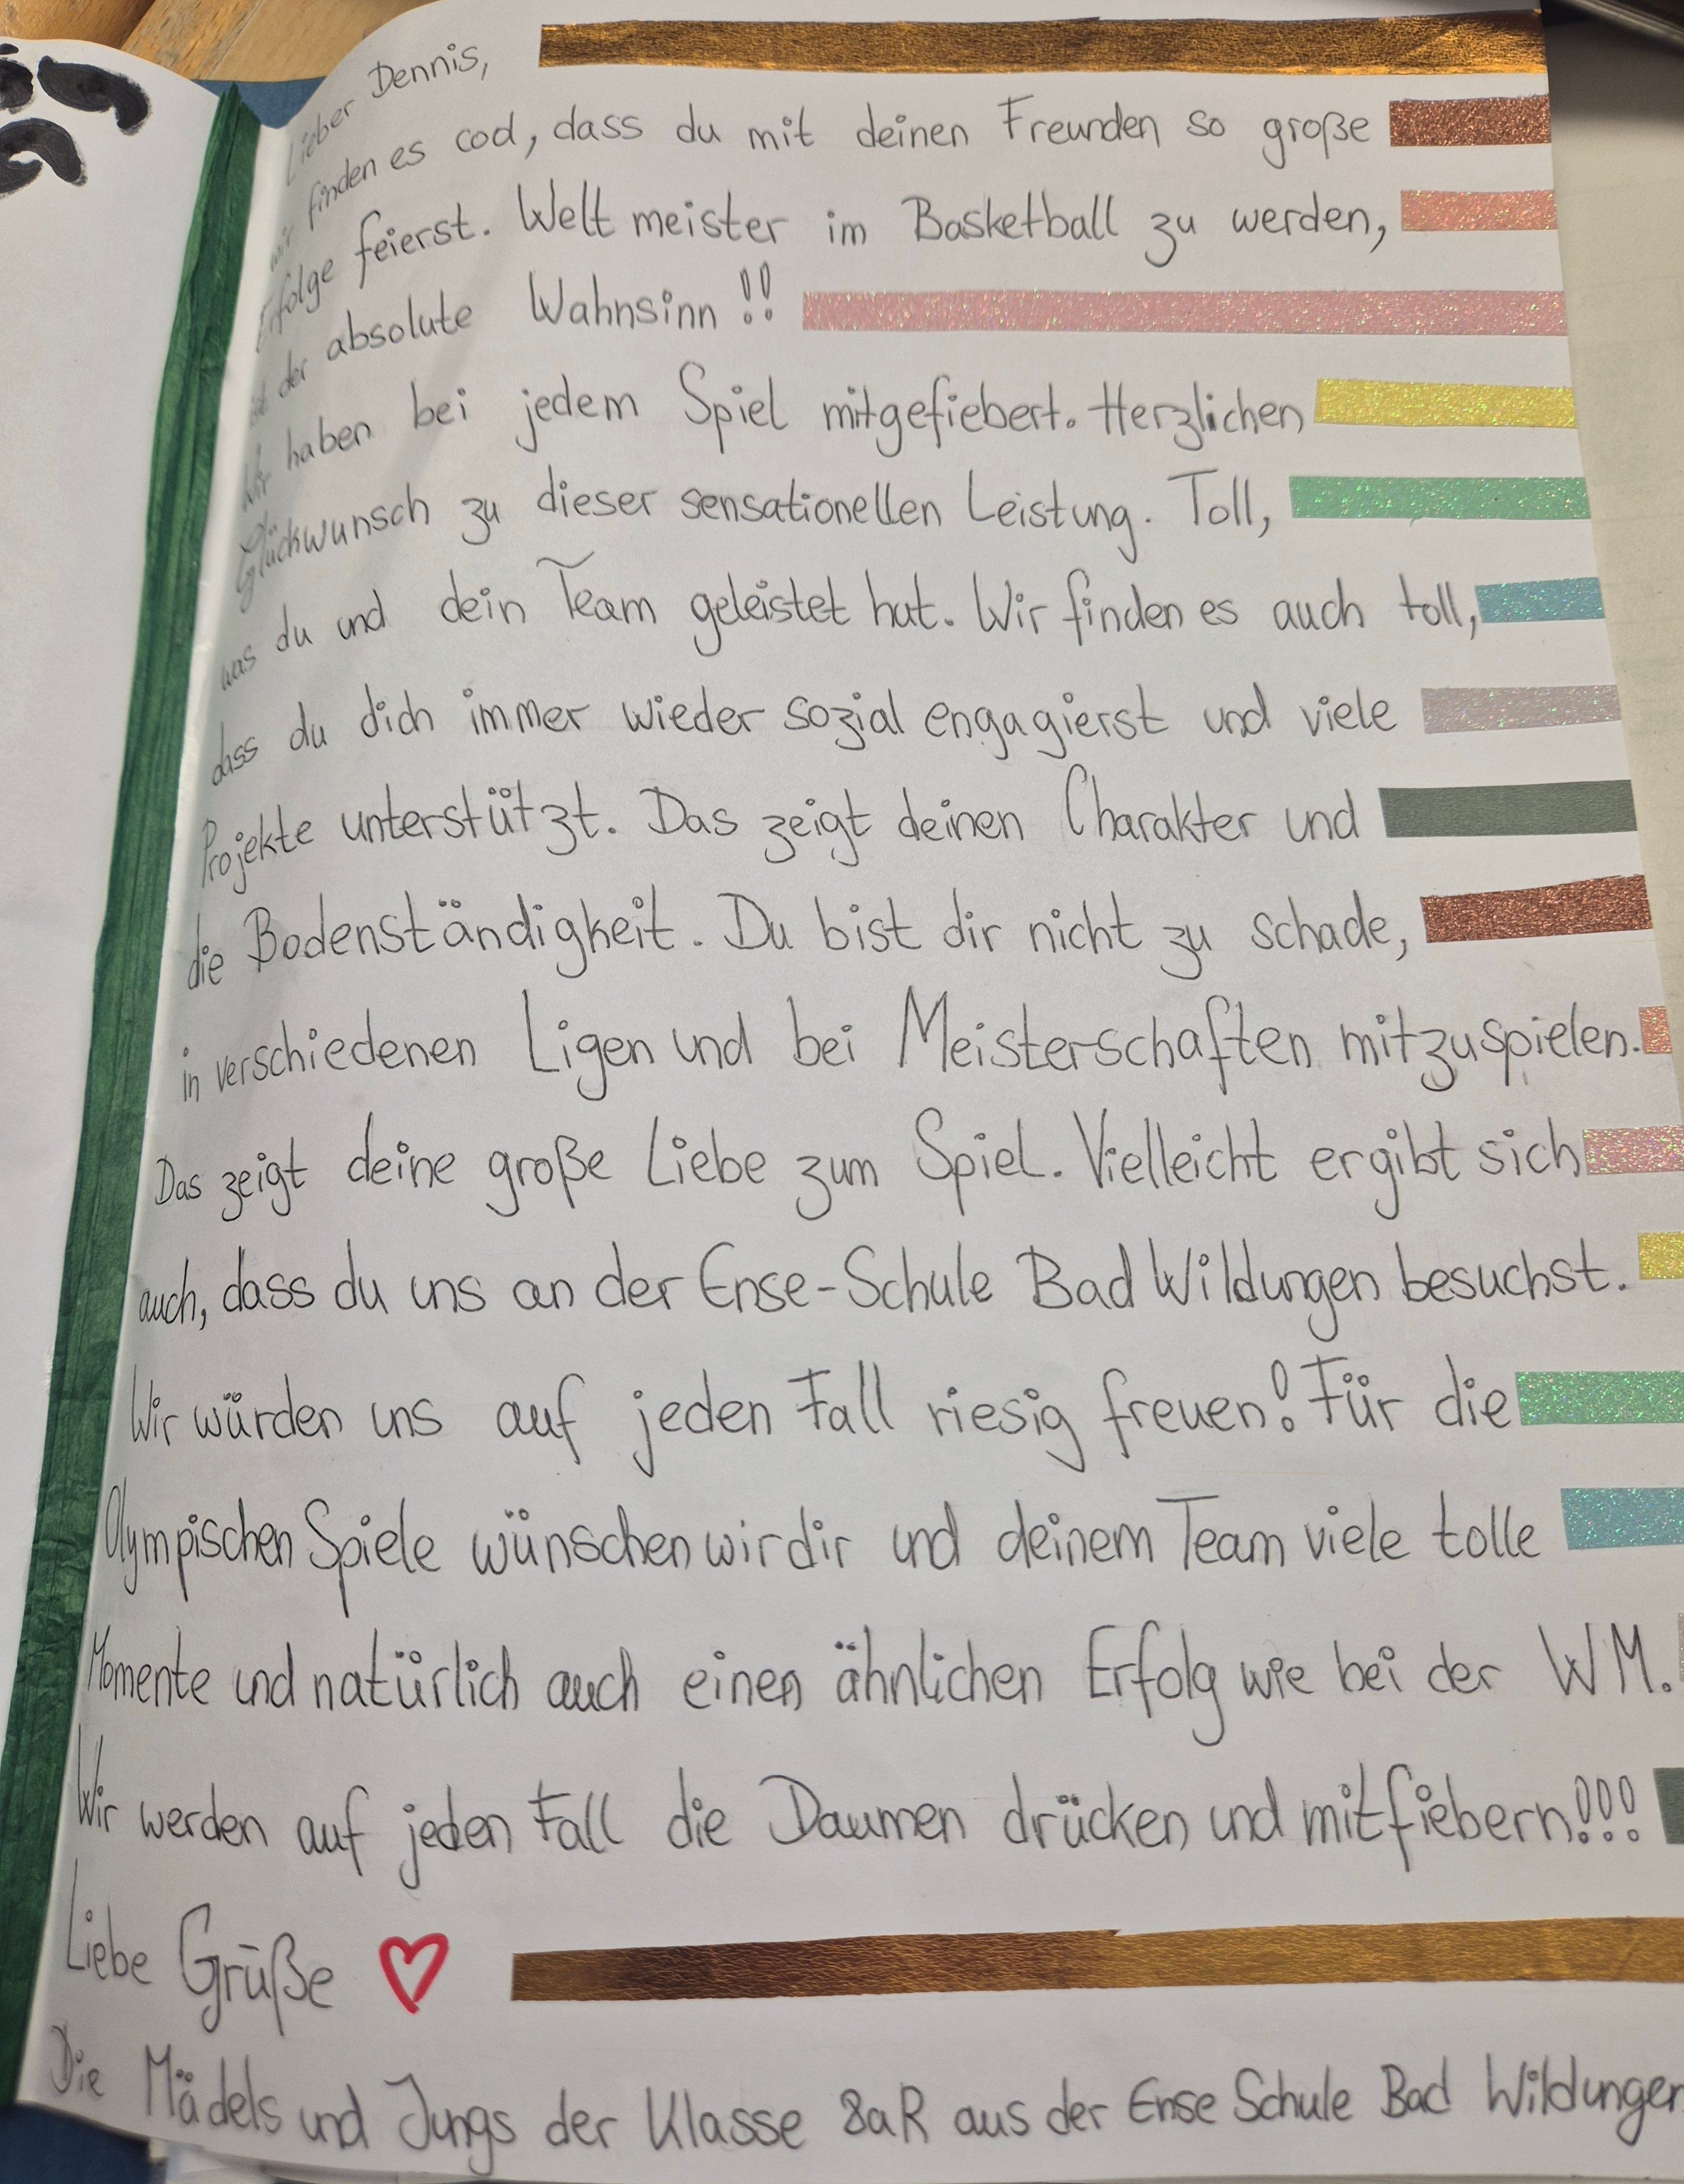 Lieber Dennis,
wir finden es cool, dass du mit deinen Freunden so große
Erfolge feierst. Weltmeister im Basketball zu werden,
ist der absolute Wahnsinn!!
Wir haben bei jedem Spiel mitgefiebert. Herzlichen
Glückwunsch zu dieser sensationellen Leistung. Toll,
was du und dein Team geleistet hat. Wir finden es auch toll,
dass du dich immer wieder sozial engagierst und viele
Projekte unterstützt. Das zeigt deinen Charakter und
die Bodenständigkeit. Du bist dir nicht zu schade,
in verschiedenen Ligen und bei Meisterschaften mitzuspielen.
Das zeigt deine große Liebe zum Spiel. Vielleicht ergibt sich
auch, dass du uns an der Ense-Schule Bad Wildungen besuchst.
Wir würden uns auf jeden Fall riesig freuen! Für die
Olympischen Spiele wünschen wir dir und deinem Team viele tolle
Momente und natürlich auch einen ähnlichen Erfolg wie bei der WM.
Wir werden auf jeden Fall die Daumen drücken und mitfiebern!!!
Liebe Grüße
Die Mädels und Jungs der Klasse 8aR aus der Ense Schule Bad Wildungen